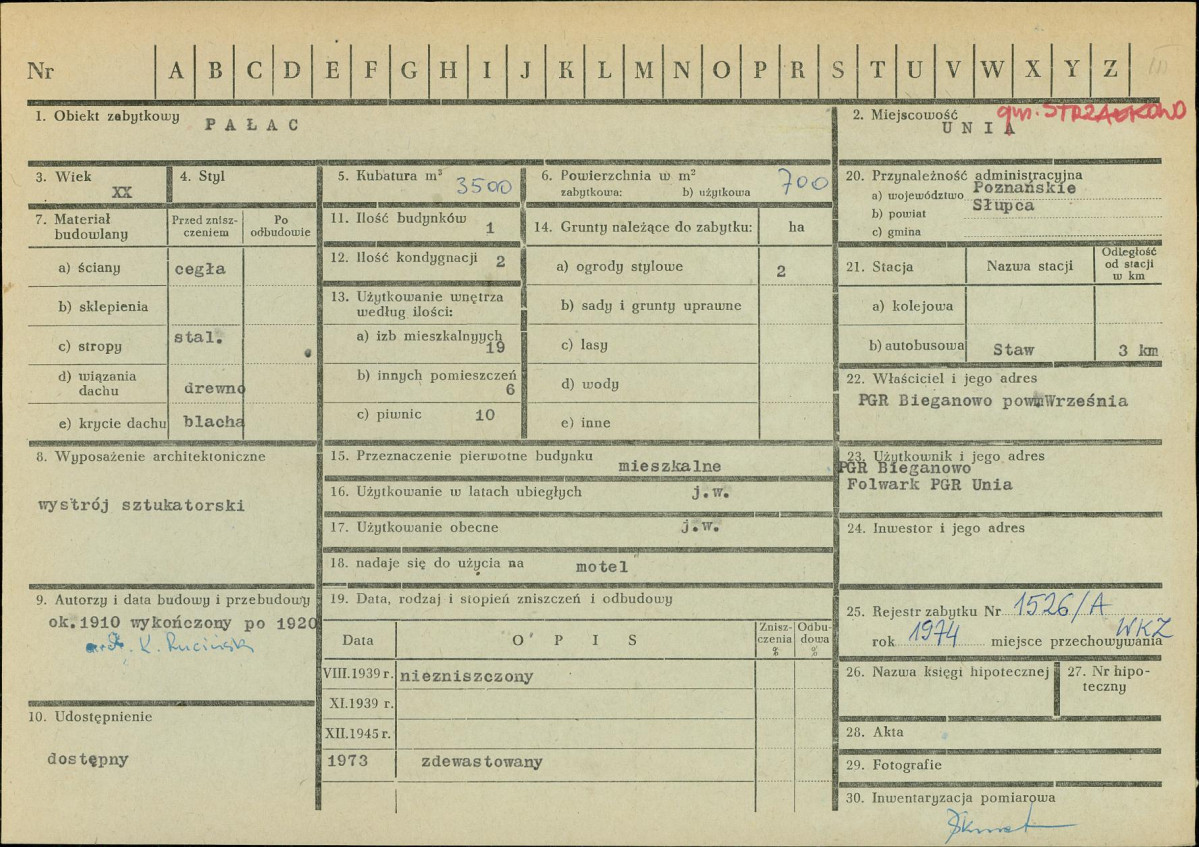 Nr A B C D E F G H I J K L M N O P R S T U V W X Y Z III
1. Obiekt zabytkowy
PAŁAC
2. Miejscowość gm. STRZAŁKOWO
UNIA
3. Wiek
XX
4. Styl
5. Kubatura m³ 3500
6. Powierzchnia w m² 700
zabytkowa: b) użytkowa
20. Przynależność administracyjna
a) województwo Poznańskie
b) powiat Słupca
c) gmina
7. Materiał budowlany
Przed zniszczeniem
Po odbudowie
a) ściany cegła
b) sklepienia
c) stropy stal.
d) wiązania dachu drewno
e) krycie dachu blacha
11. Ilość budynków 1
12. Ilość kondygnacji 2
13. Użytkowanie wnętrza
według ilości:
a) izb mieszkalnych 19
b) innych pomieszczeń 6
c) piwnic 10
14. Grunty należące do zabytku: ha
a) ogrody stylowe 2
b) sady i grunty uprawne
c) lasy
d) wody
e) inne
21. Stacja Nazwa stacji Odległość od stacji w km
a) kolejowa
b) autobusowa Staw 3 km
22. Właściciel i jego adres
PGR Bieganowo pow. Września
8. Wyposażenie architektoniczne
wystrój sztukatorski
15. Przeznaczenie pierwotne budynku mieszkalne
16. Użytkowanie w latach ubiegłych j.w.
17. Użytkowanie obecne j.w.
18. nadaje się do użycia na motel
23. Użytkownik i jego adres
PGR Bieganowo
Folwark PGR Unia
24. Inwestor i jego adres
9. Autorzy i data budowy i przebudowy
ok.1910 wykończony po 1920
arch. K. Ruciński
19. Data, rodzaj i stopień zniszczeń i odbudowy
Data OPIS Zniszczenia % Odbudowa %
VIII.1939 r. niezniszczony
XI.1939 r.
XII.1945 r.
1973 zdewastowany
10. Udostępnienie
dostępny
25. Rejestr zabytku Nr 1526/A
rok 1974 miejsce przechowywania WKZ
26. Nazwa księgi hipotecznej
27. Nr hipoteczny
28. Akta
29. Fotografie
30. Inwentaryzacja pomiarowa